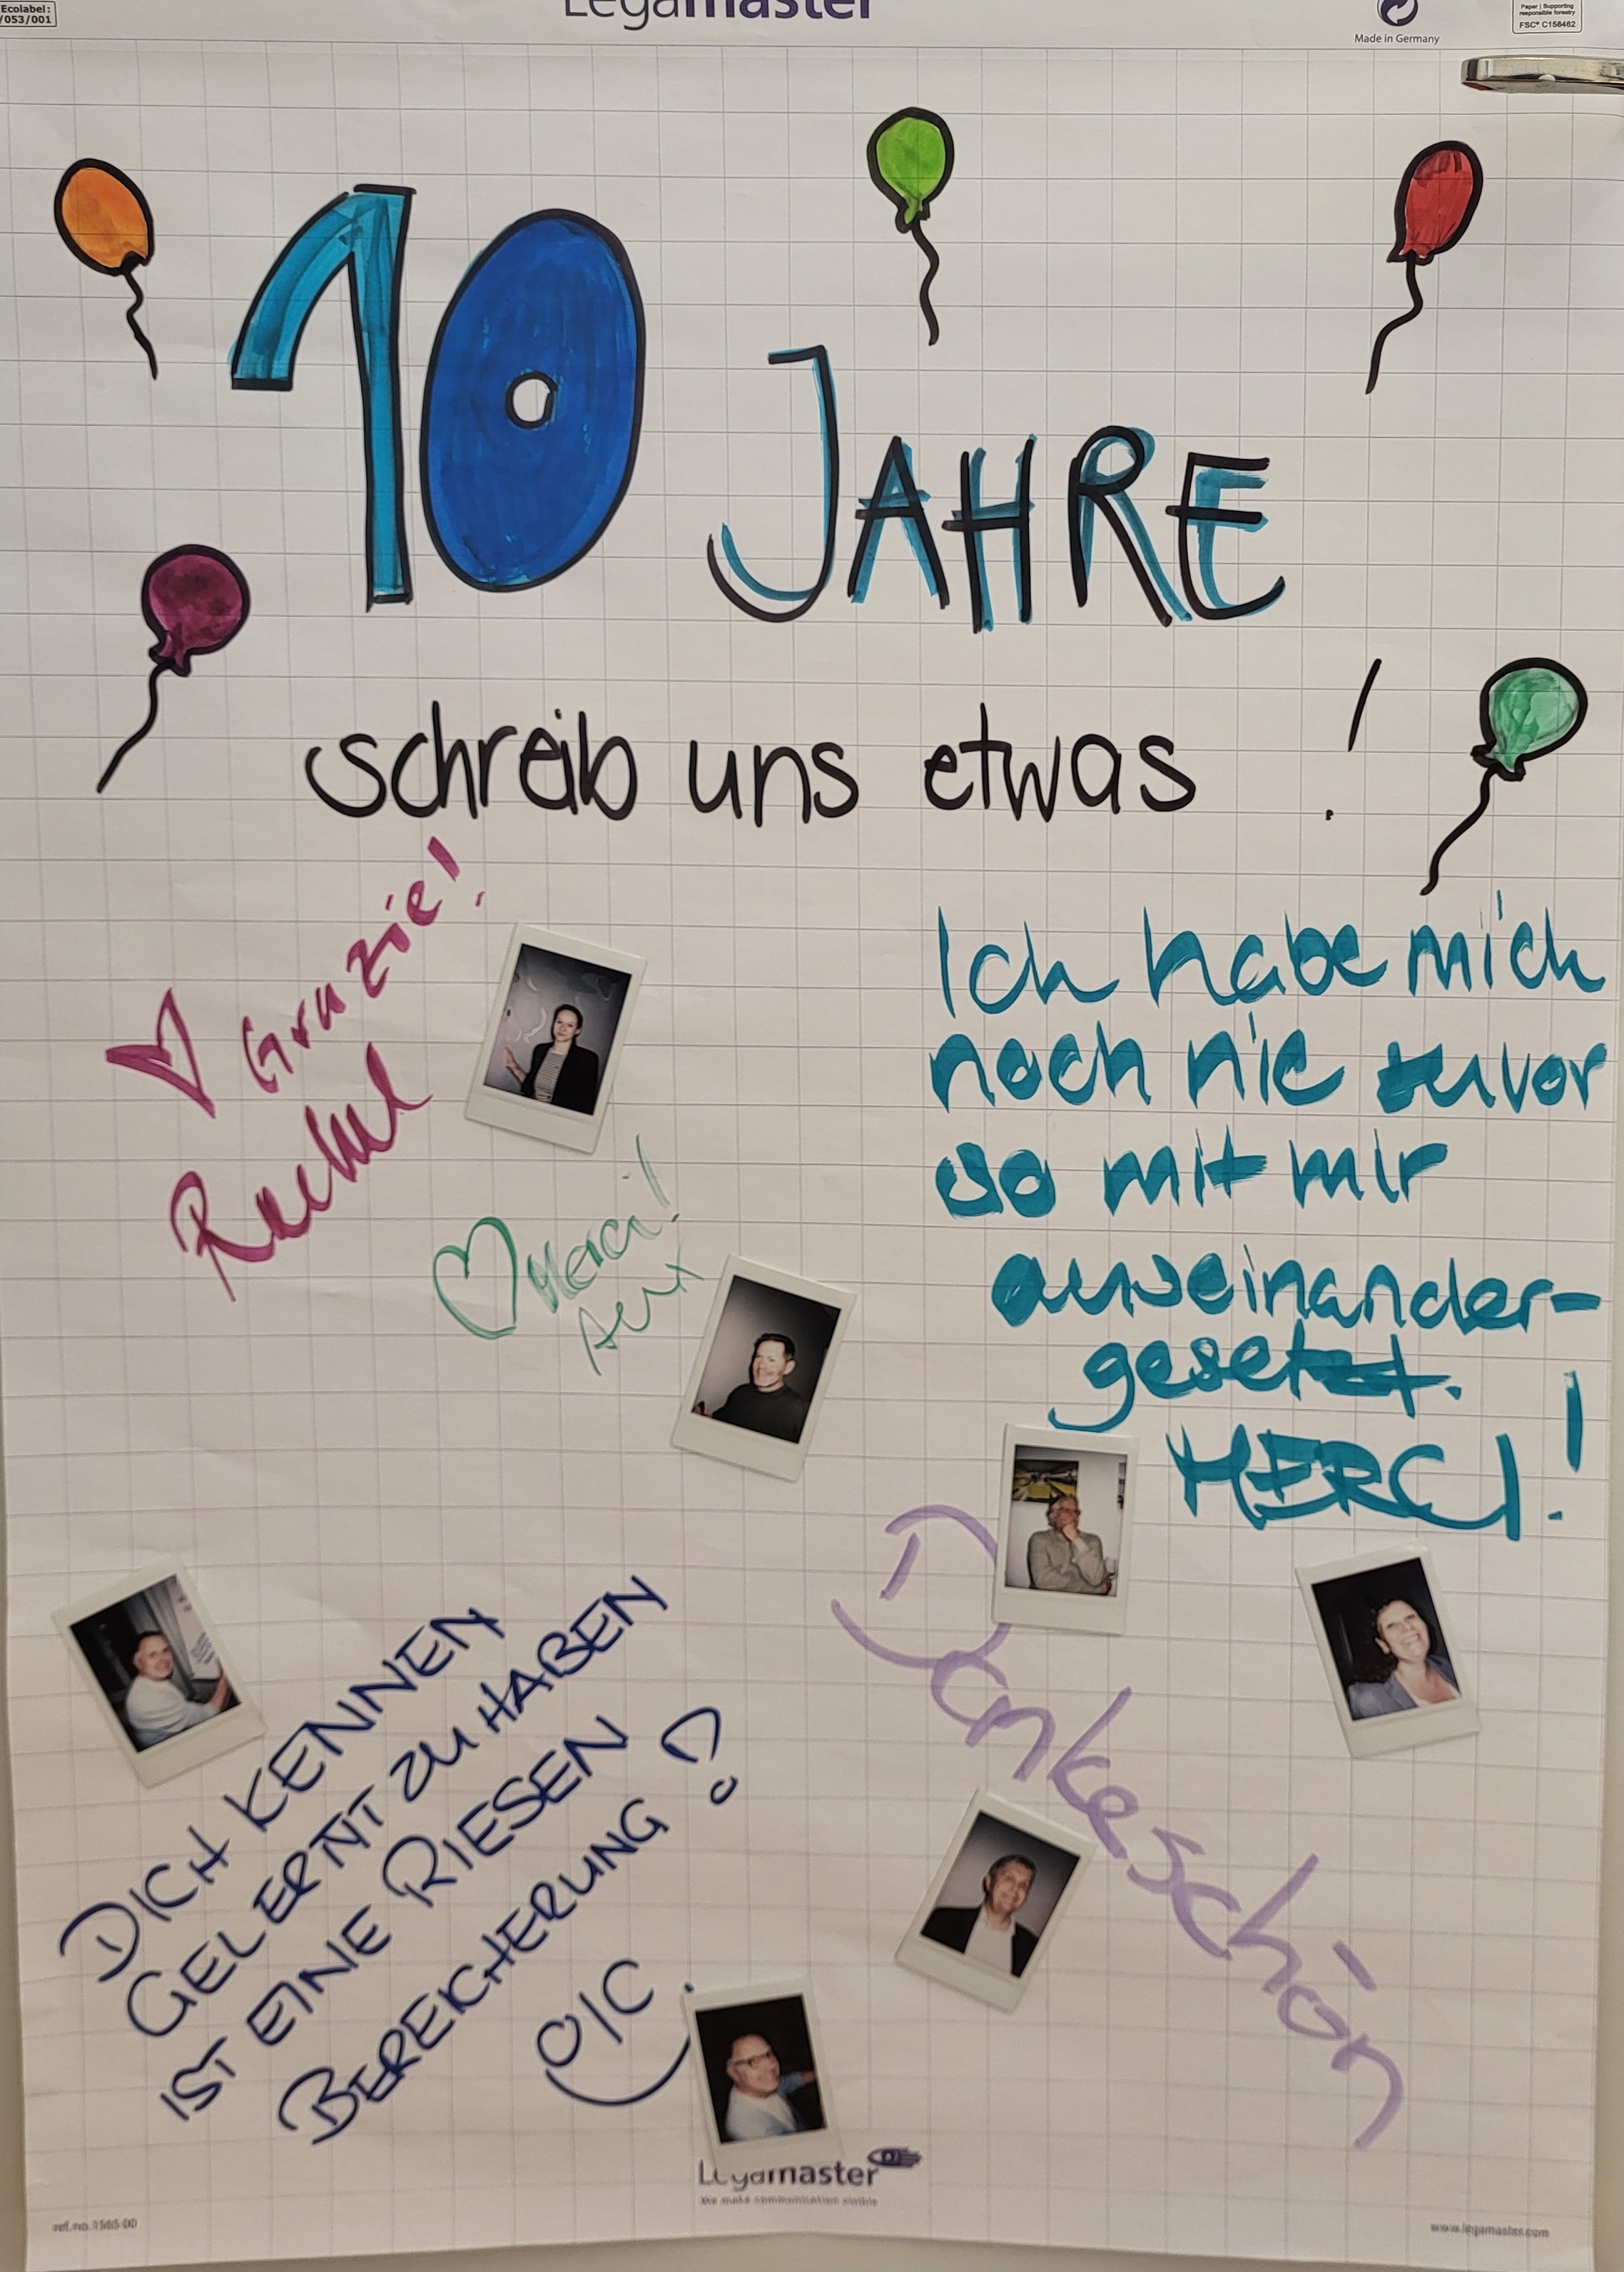 Ecolabel:
/053/001
Legamaster
Made in Germany
Paper | Supporting
responsible forestry
FSC® C158462
10 JAHRE
schreib uns etwas !
♡ Grazie!
Rachel
Ich habe mich
noch nie zuvor
so mit mir
auseinander-
gesetzt.
MERCI!
♡ Merci!
Dankeschön
DICH KENNEN
GELERNT ZU HABEN
IST EINE RIESEN
BEREICHERUNG!
Legamaster
We make communication visible
www.legamaster.com